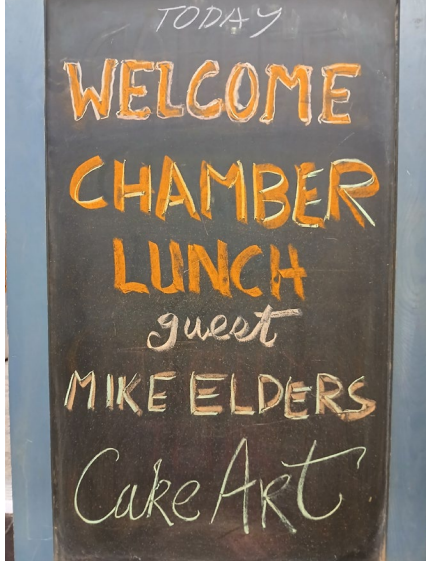 TODAY
WELCOME
CHAMBER
LUNCH
guest
MIKE ELDERS
Cake Art